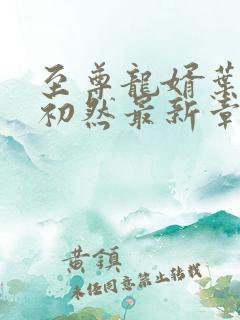 至尊龍婿葉
初然最新章
黄鎮
未任同意禁止转载